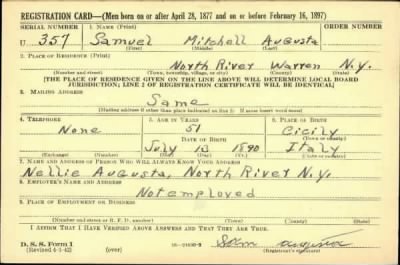 REGISTRATION CARD—(Men born on or after April 28, 1877 and on or before February 16, 1897)
SERIAL NUMBER 1. NAME (Print) ORDER NUMBER
U 357 Samuel Mitchell Augusta
(First) (Middle) (Last)
2. PLACE OF RESIDENCE (Print)
North River Warren N.Y.
(Number and street) (Town, township, village, or city) (County) (State)
[THE PLACE OF RESIDENCE GIVEN ON THE LINE ABOVE WILL DETERMINE LOCAL BOARD
JURISDICTION; LINE 2 OF REGISTRATION CERTIFICATE WILL BE IDENTICAL]
3. MAILING ADDRESS
Same
[Mailing address if other than place indicated on line 2. If same insert word same]
4. TELEPHONE 5. AGE IN YEARS 6. PLACE OF BIRTH
None 51 Cicily
DATE OF BIRTH (Town or county)
July 13 1890 Italy
(Exchange) (Number) (Mo.) (Day) (Yr.) (State or country)
7. NAME AND ADDRESS OF PERSON WHO WILL ALWAYS KNOW YOUR ADDRESS
Nellie Augusta, North River N.Y.
8. EMPLOYER'S NAME AND ADDRESS
Not employed
9. PLACE OF EMPLOYMENT OR BUSINESS
(Number and street or R. F. D. number) (Town) (County) (State)
I AFFIRM THAT I HAVE VERIFIED ABOVE ANSWERS AND THAT THEY ARE TRUE.
D. S. S. Form 1 Sam
(Revised 4-1-42) (over) (Registrant's signature)